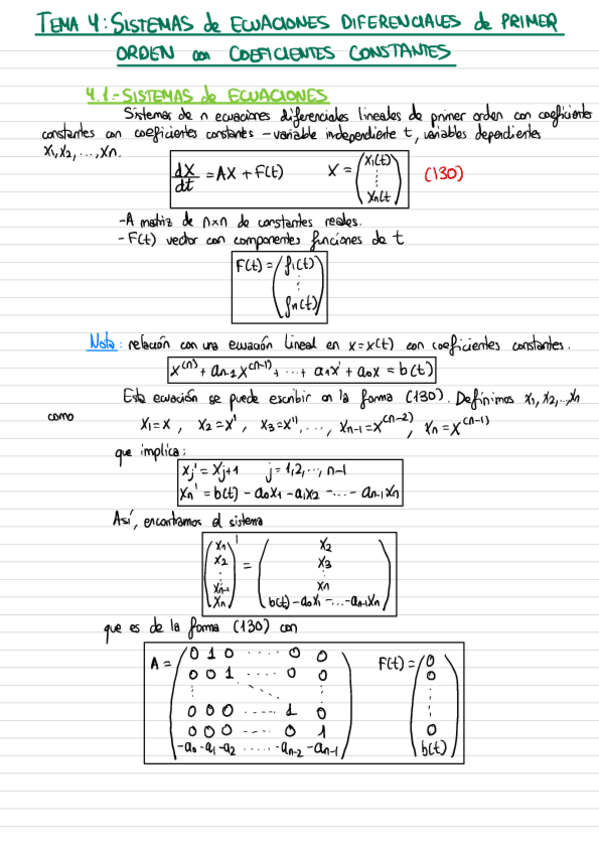 TEMA 4: SISTEMAS de ECUACIONES DIFERENCIALES de PRIMER
ORDEN con COEFICIENTES CONSTANTES
4.1.- SISTEMAS de ECUACIONES
Sistemas de n ecuaciones diferenciales lineales de primer orden con coeficientes
constantes con coeficientes constantes - variable independiente t, variables dependientes
x₁, x₂, ..., xn.
dX/dt = AX + F(t) X = (x₁(t) ⋮ xn(t) (130)
- A matriz de n×n de constantes reales.
- F(t) vector con componentes funciones de t
F(t) = (f₁(t) ⋮ fn(t))
Nota: relación con una ecuación lineal en x=x(t) con coeficientes constantes.
x⁽ⁿ⁾ + an-1 x⁽ⁿ⁻¹⁾ + ... + a₁x' + a₀x = b(t)
Esta ecuación se puede escribir en la forma (130). Definimos x₁, x₂, ..., xn
como x₁=x, x₂=x', x₃=x'', ..., xn-1=x⁽ⁿ⁻²⁾, xn=x⁽ⁿ⁻¹⁾
que implica:
xj' = xj+1 j=1,2,..., n-1
xn' = b(t) - a₀x₁ - a₁x₂ - ... - an-1xn
Así, encontramos el sistema
(x₁ x₂ ⋮ xn-1 xn)' = (x₂ x₃ ⋮ xn b(t)-a₀x₁-...-an-1xn)
que es de la forma (130) con
A = (0 1 0 ..... 0 0 F(t) = (0
0 0 1 .... 0 0 0
⋮ ⋱ ⋮ ⋮
0 0 0 ..... 1 0
0 0 0 ..... 0 1 0
-a₀ -a₁ -a₂ ...... -an-2 -an-1) b(t))